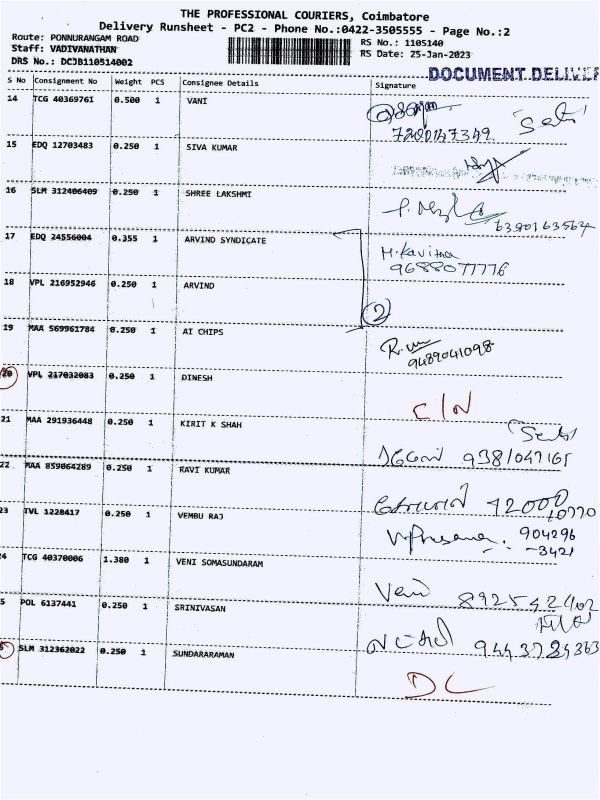 THE PROFESSIONAL COURIERS, Coimbatore
Delivery Runsheet - PC2 - Phone No.:0422-3505555 - Page No.:2
Route: PONNURANGAM ROAD
Staff: VADIVANATHAN
DRS No.: DCJB110514002
RS No.: 1105140
RS Date: 25-Jan-2023
DOCUMENT DELIVER
S No Consignment No Weight PCS Consignee Details Signature
14 TCG 40369761 0.500 1 VANI
7200147349
15 EDQ 12703483 0.250 1 SIVA KUMAR
16 SLM 312406409 0.250 1 SHREE LAKSHMI
6380163564
17 EDQ 24556004 0.355 1 ARVIND SYNDICATE M.Kavitha
9688077776
18 VPL 216952946 0.250 1 ARVIND
2
19 MAA 569961784 0.250 1 AI CHIPS
9489041098
20 VPL 217032083 0.250 1 DINESH
C/N
21 MAA 291936448 0.250 1 KIRIT K SHAH
9381047165
22 MAA 859064289 0.250 1 RAVI KUMAR
23 TVL 1228417 0.250 1 VEMBU RAJ
904296
-3421
24 TCG 40370006 1.380 1 VENI SOMASUNDARAM
Veni
5 POL 6137441 0.250 1 SRINIVASAN
SLM 312362022 0.250 1 SUNDARARAMAN
DC